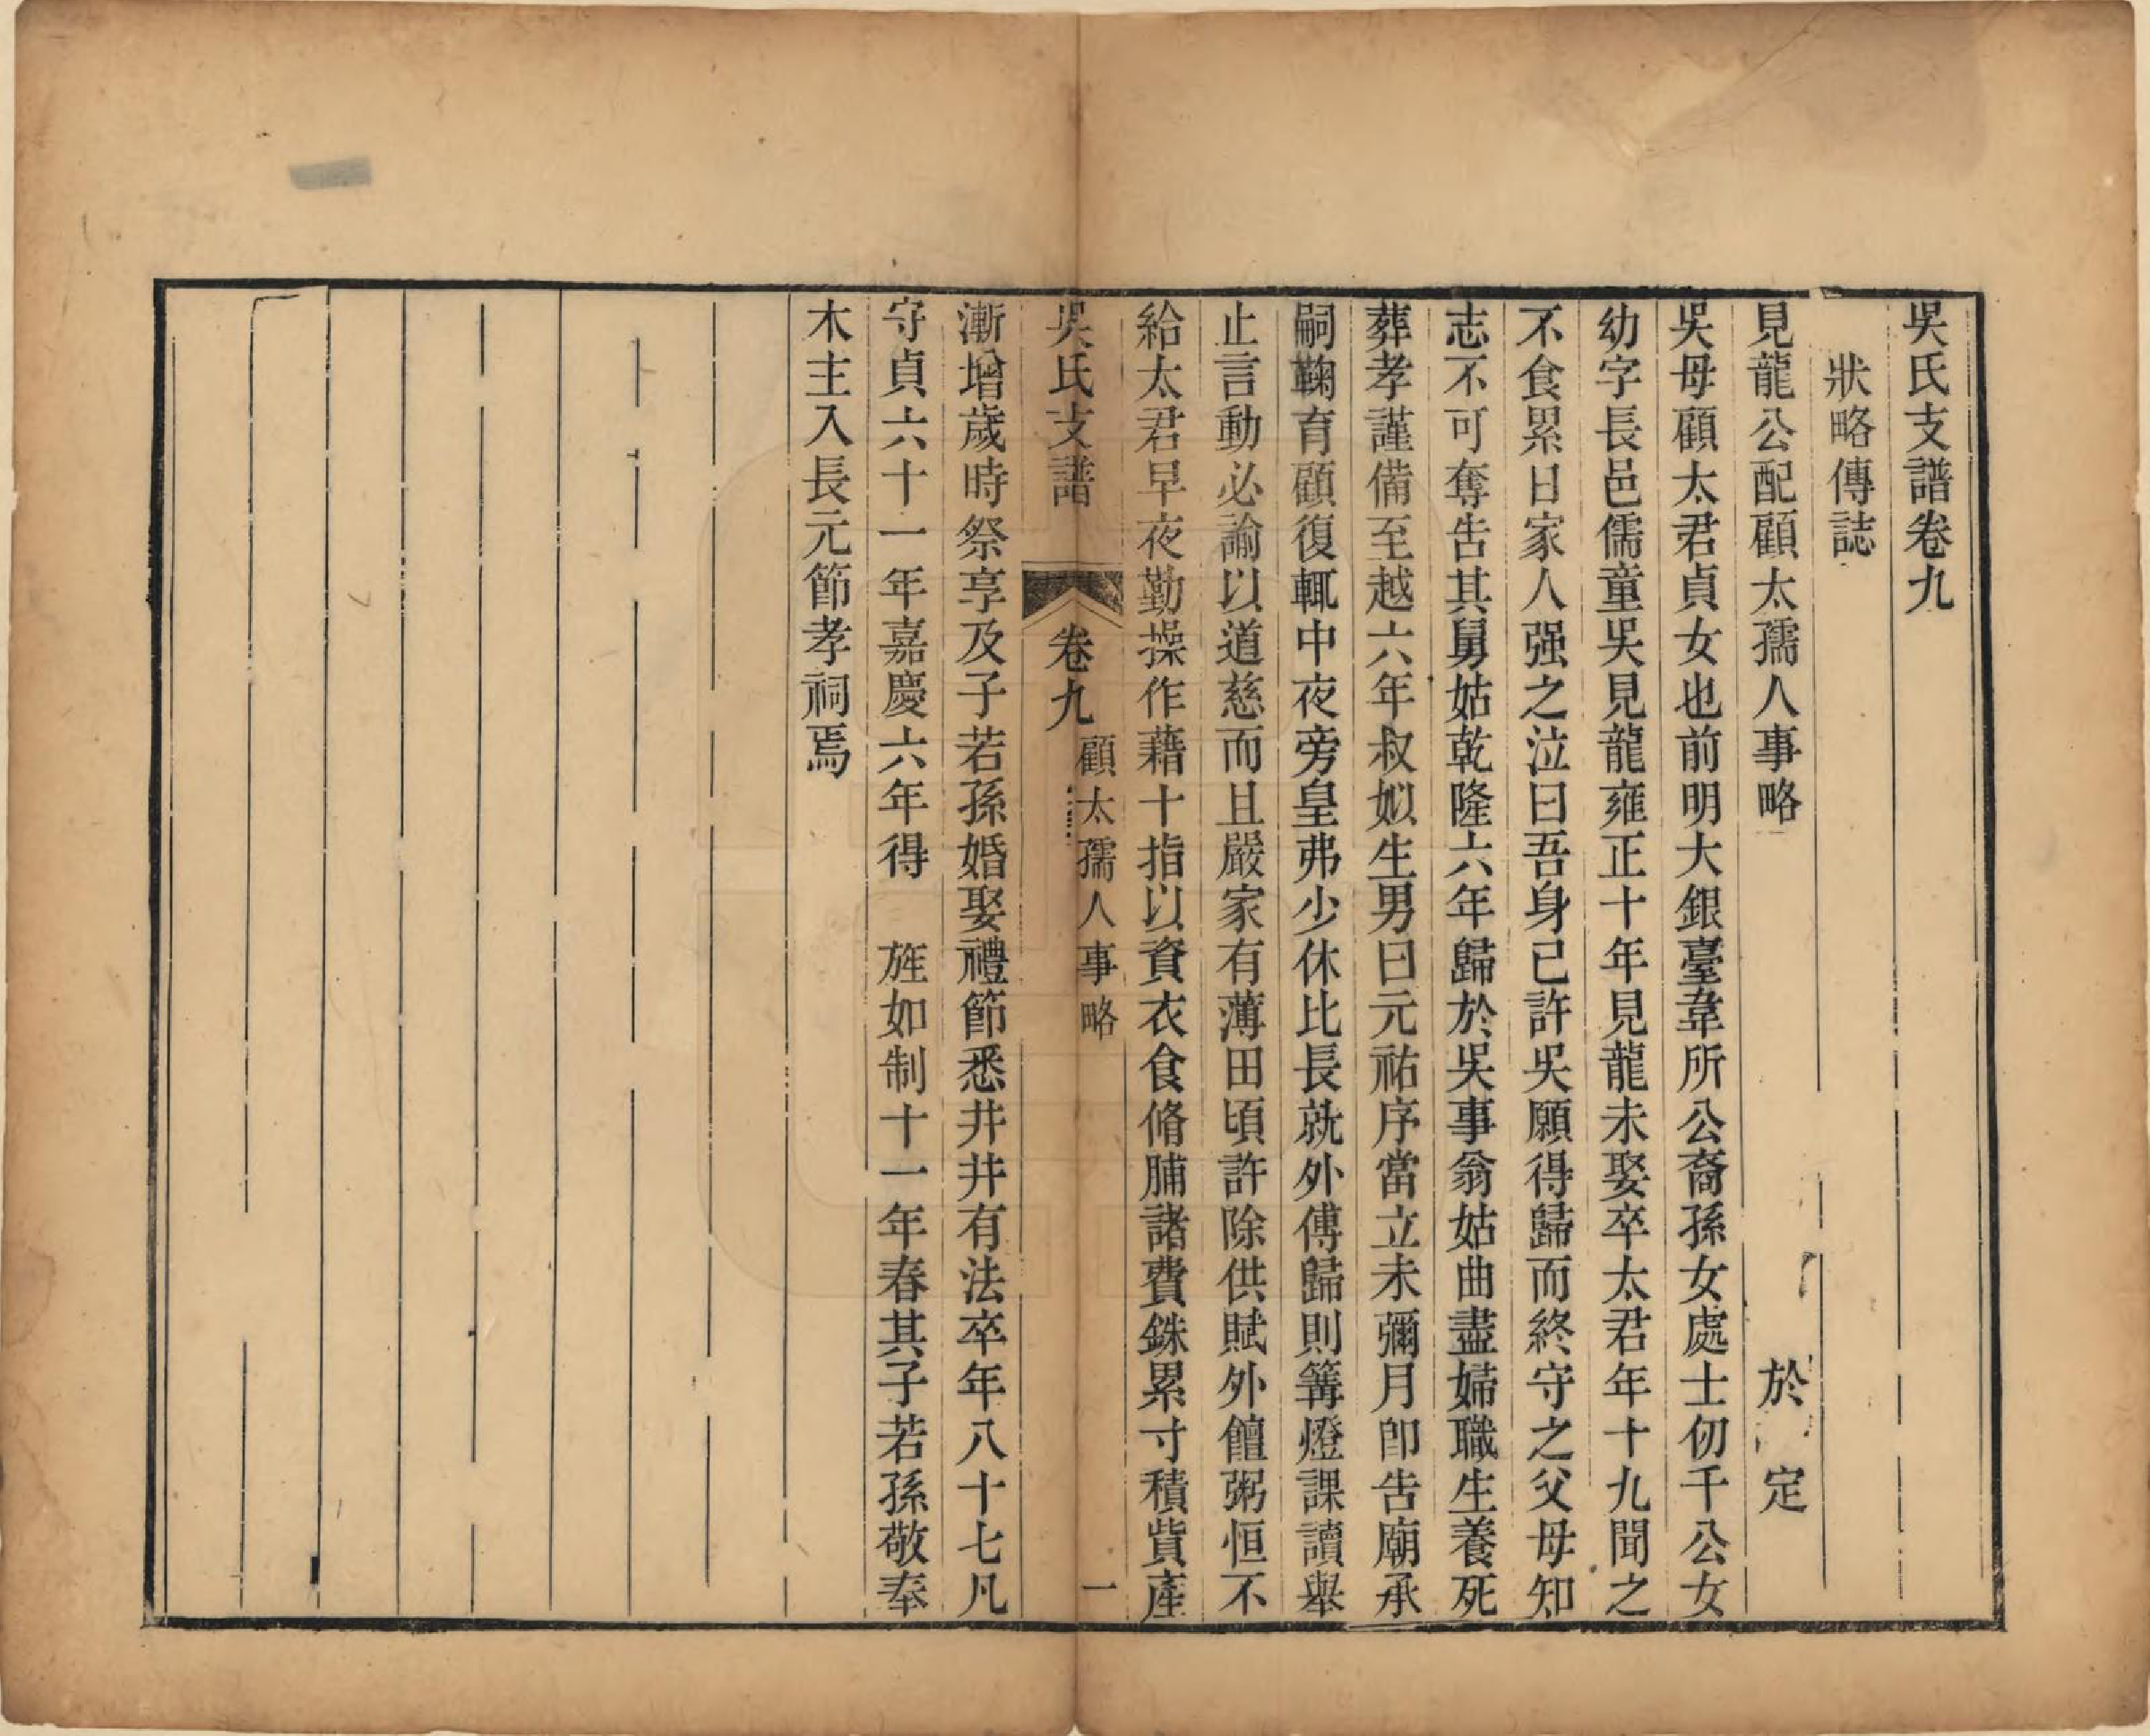 吳氏支譜卷九
狀略傳誌
見龍公配顧太孺人事略 於 定
吳母顧太君貞女也前明大銀臺韋所公裔孫女處士仞千公女
幼字長邑儒童吳見龍雍正十年見龍未娶卒太君年十九聞之
不食累日家人强之泣曰吾身已許吳願得歸而終守之父母知
志不可奪告其舅姑乾隆六年歸於吳事翁姑曲盡婦職生養死
葬孝謹備至越六年叔姒生男曰元祐序當立未彌月卽告廟承
嗣鞠育顧復輒中夜旁皇弗少休比長就外傅歸則篝燈課讀舉
止言動必諭以道慈而且嚴家有薄田頃許除供賦外饘粥恒不
給太君早夜勤操作藉十指以資衣食脩脯諸費銖累寸積貲產
吳氏支譜 卷九 顧太孺人事略 一
漸增歲時祭享及子若孫婚娶禮節悉井井有法卒年八十七凡
守貞六十一年嘉慶六年得 旌如制十一年春其子若孫敬奉
木主入長元節孝祠焉